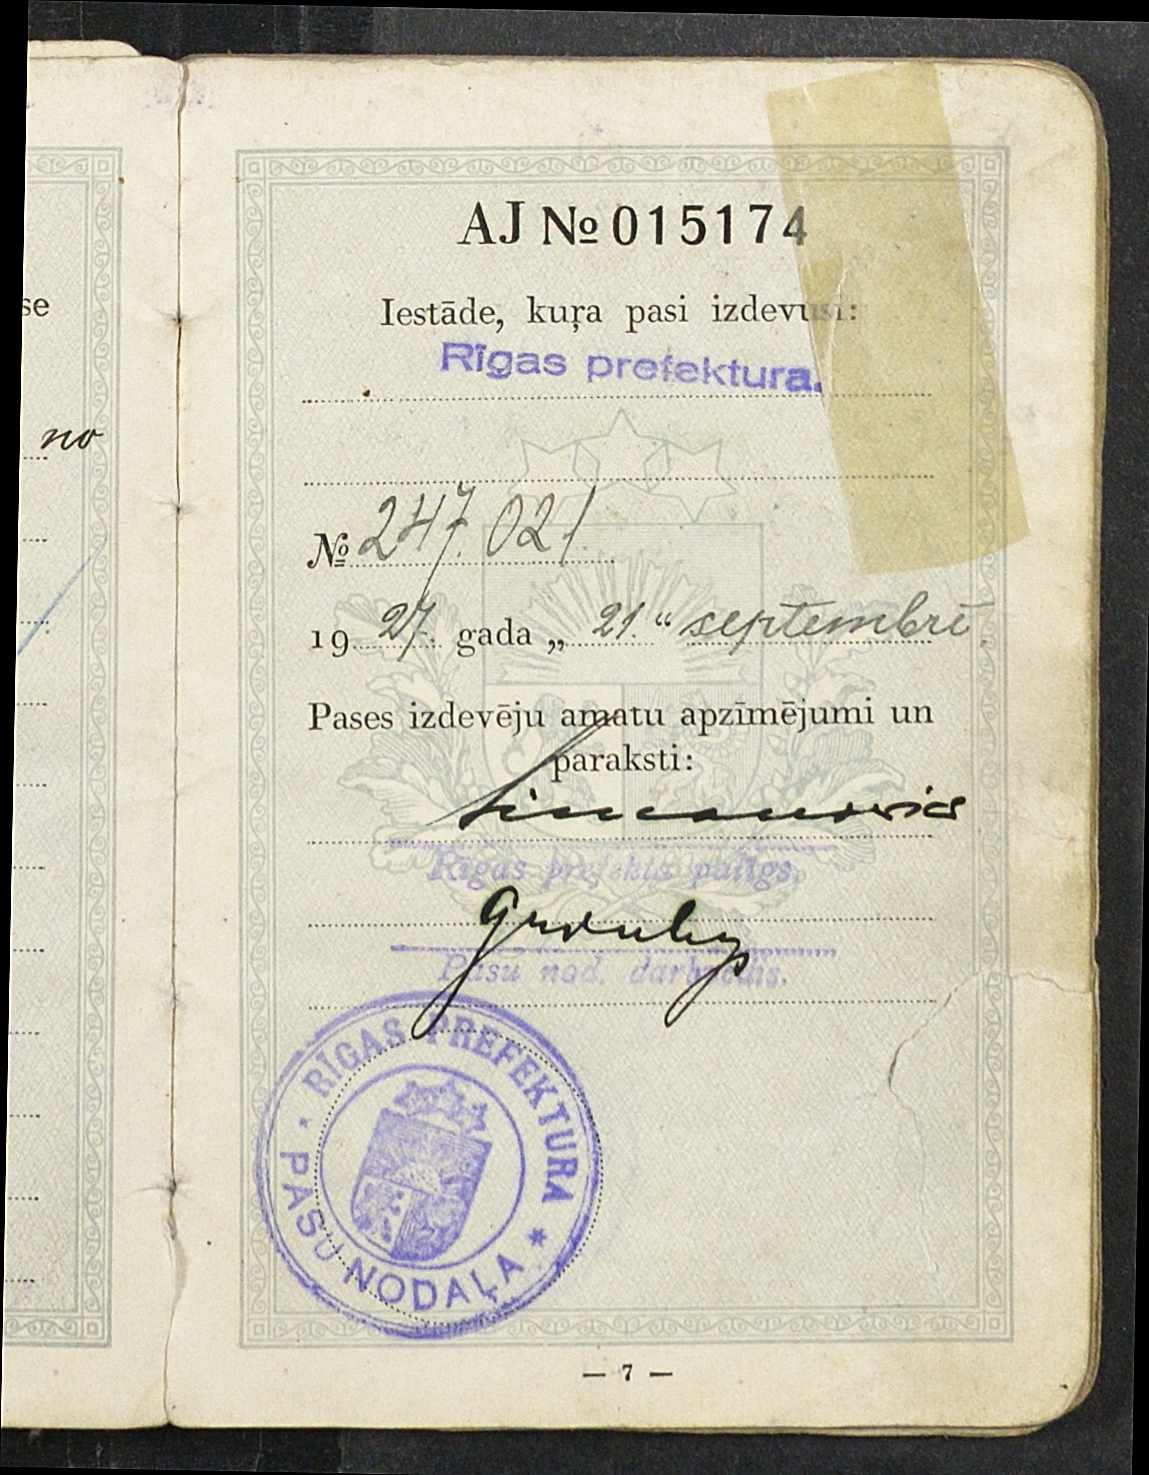 se
no
AJ № 015174
Iestāde, kuŗa pasi izdevusi:
Rīgas prefektura.
№ 247.021
1927. gada „21.“ septembrī
Pases izdevēju amatu apzīmējumi un
paraksti:
Rīgas prefekta palīgs.
Pasu nod. darbvedis.
RĪGAS PREFEKTURA
PASU NODAĻA
— 7 —